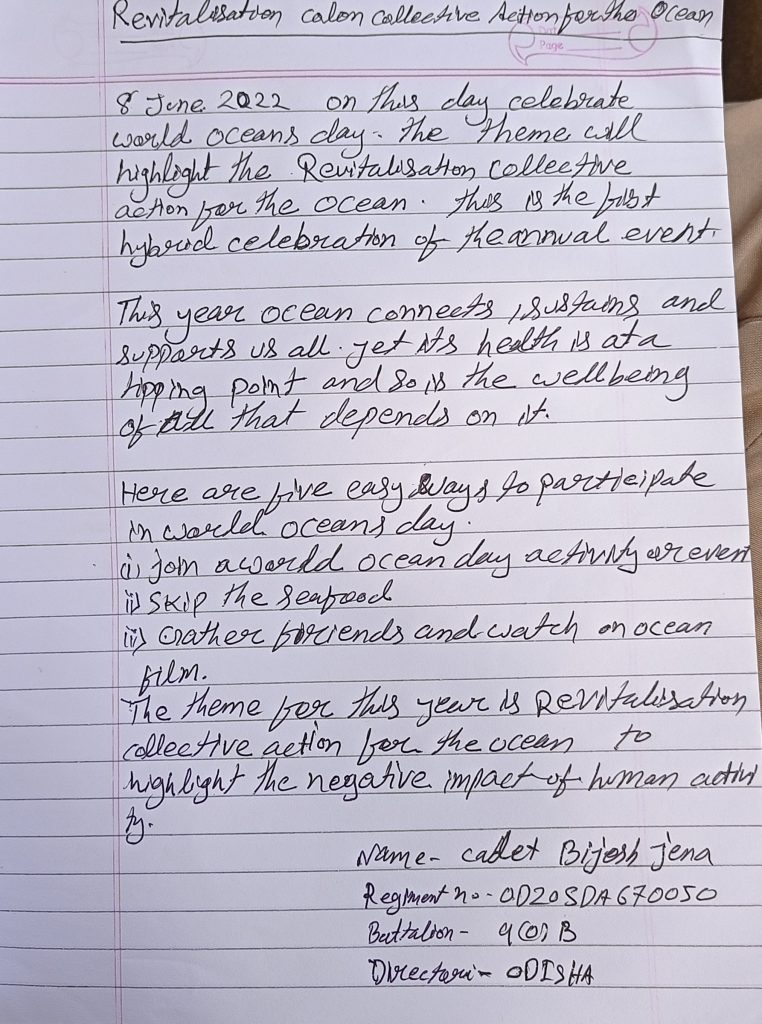 Revitalisation calon collective Action for the Ocean
Page
8 June 2022 on this day celebrate
world oceans day. The theme will
highlight the Revitalisation collective
action for the ocean. this is the first
hybrid celebration of the annual event.
This year ocean connects, sustains and
supports us all. yet its health is at a
tipping point and so is the wellbeing
of all that depends on it.
Here are five easy ways to participate
in world oceans day.
i) join a world ocean day activity or event
ii) Skip the seafood
iii) Gather friends and watch on ocean
film.
The theme for this year is Revitalisation
collective action for the ocean to
highlight the negative impact of human activi
ty.
Name- cadet Bijesh jena
Regiment no- OD20SDA670050
Battalion-
Directori- ODISHA